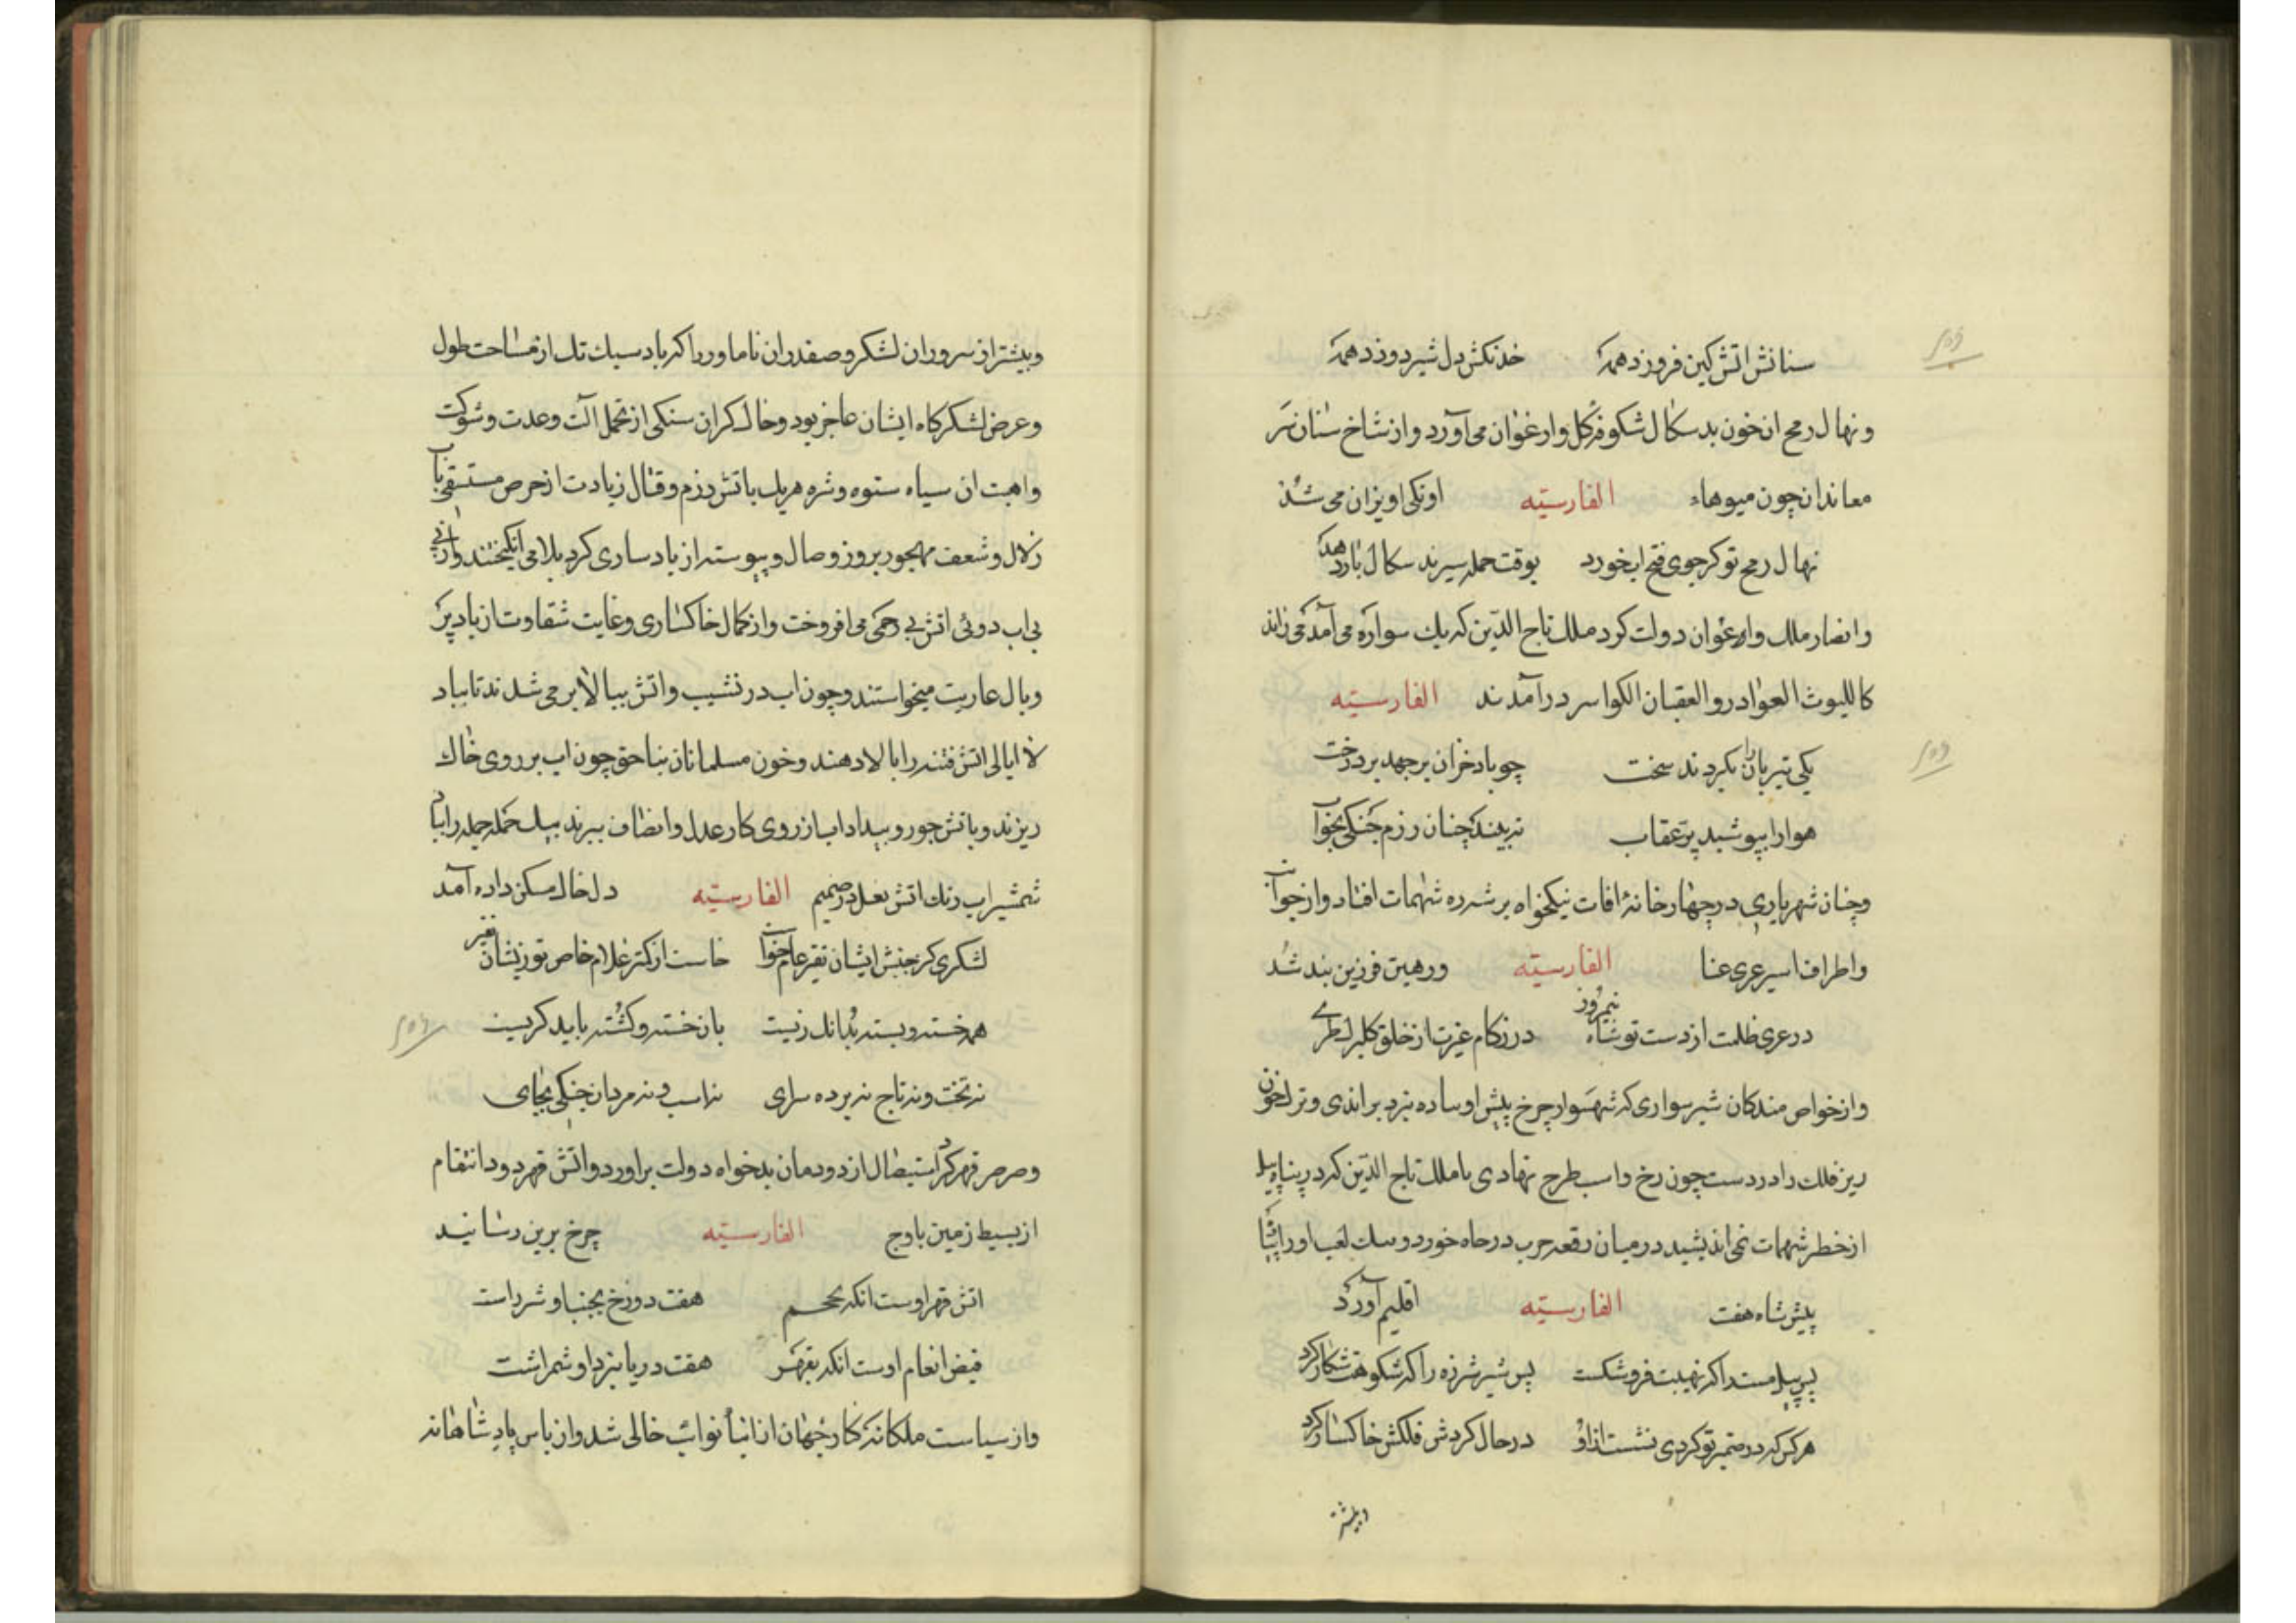 سنانش اتش کین فروزد همه خدنکش دل شیر دوزد همه
ونهال رمح از خون بدسکال شکوفه کل وارغوان می آورد واز شاخ سنان سر
معاندان چون میوهاء الفارسیّه اونکی اویزان می شد
نهال رمح تو کز جوی فتح ابخورد بوقت حمله سر بدسکال بار دهد
وانصار ملک واعوان دولت کرد ملک تاج الدّین که یک سواره می آمد می راند
کاللیوث العوادر والعقبان الکواسر درآمدند الفارسیّه
یکی تیر باران بکردند سخت چو باد خزان برجهد بر درخت
هوا را بپوشید پر عقاب نه بیند چنان رزم جنکی بخواب
وچنان شهریاری در چهار خانهٔ افات نیکخواه بر شه ره شهمات افتاد واز جوانب
واطراف اسیر عری عنا الفارسیّه ورهین فرزین بند شد
در عری ظلمت از دست تو شاه نیمروز در زکام غیرت از خلق
واز خواص بندکان شیر سواری که شهسوار چرخ پیش او ساده نبرد براندی وترک خون
ریز فلک را در دست چون رخ واسب طرح نهادی با ملک تاج الدّین که در پناه پیل
از خطر شهمات نمی اندیشید در میان رقعه حرب در خورد وبیک لعب او را
پیش شاه هفت الفارسیّه اقلیم آورد
بس پیل مست را که نهیبت فرو شکست بس شیر شرزه را که شکوهت شکار کرد
هر کس که در ضمیر تو کردی نشست ازو در حال کردش فلکش خاکسار کرد
وبیشتر
وبیشتر از سروران لشکر وصفدران ناماور را که باد سبک تک از مساحت طول
وعرض لشکرکاه ایشان عاجز بود وخاک کران سنکی از تحمل آلت وعدت وشوکت
واهبت ان سپاه ستوه وشره هر یک باتش رزم وقتال زیادت از حرص مستسقی باب
زلال وشعف مهجور بروز وصال وپیوسته از باد ساری کرد بلا می انکیختند واز
بی اب دوئی اتش بی رحمی می افروخت واز کمال خاکساری وغایت شقاوت از باد پر
وبال عاریت میخواستند وچون اب در نشیب واتش ببالا بر می شدند تا بباد
لا ابالی اتش فتنه را بالا دهند وخون مسلمانان بناحق چون اب بر روی خاک
ریزند وباتش جور وبیداد اب از روی کار عدل وانصاف ببرند بیک حمله جمله را باد
شمشیر اب رنک اتش فعل در صمیم الفارسیّه دل خاک مسکن داده آمد
لشکری کز جنبش ایشان نفیر عام خواست خاست از کمتر غلام خاص تو زیشان نفیر
همه خسته وبسته بد انک زیست بان خسته وکشته باید کریست
نه تخت ونه تاج نه پرده سرای نه اسب ونه مردان جنکی بجای
وصرصر قهر کرد استیصال از دودمان بدخواه دولت براورد واتش قهر دود انتقام
از بسیط زمین باوج الفارسیّه چرخ برین رسانید
اتش قهر اوست انکه بحجم هفت دوزخ بجنب او شرر است
فیض انعام اوست انکه بقهر هفت دریا بنزد او شمر است
واز سیاست ملکانه کار جهان از انیاب نوائب خالی شد واز باس پادشاهانه